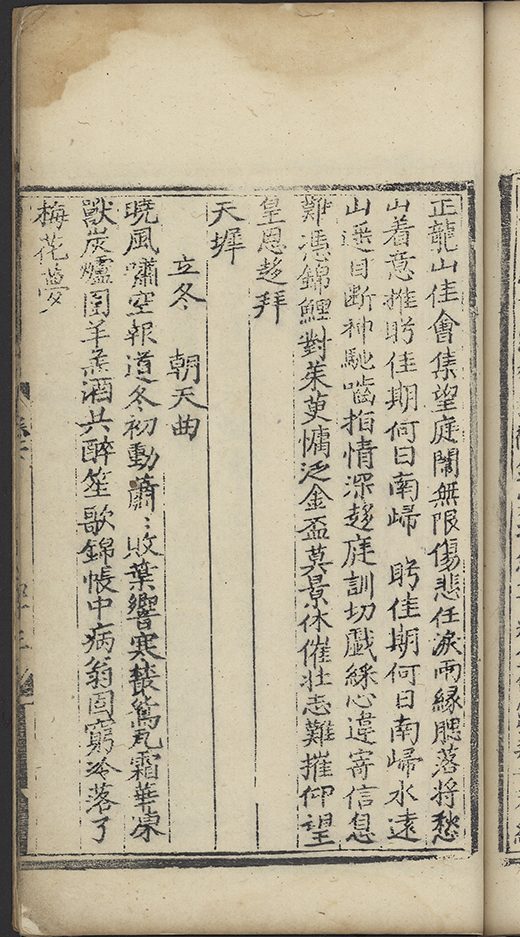 正龍山佳會集望庭闈無限傷悲任淚雨緣腮落将愁
山着意推盻佳期何日南歸　盻佳期何日南歸水遠
山遙目斷神馳嚙指情深趍庭訓切戱綵心違寄信息
難憑錦鯉對茱萸慵泛金盃莫景休催壮志難摧仰望
皇恩趍拜
天墀
立冬　朝天曲
曉風嘯空報道冬初動蕭〻收葉響寒蛩鴛瓦霜華凍
獸炭爐圍羊羔酒共醉笙歌錦帳中病翁固窮冷落了
梅花夢